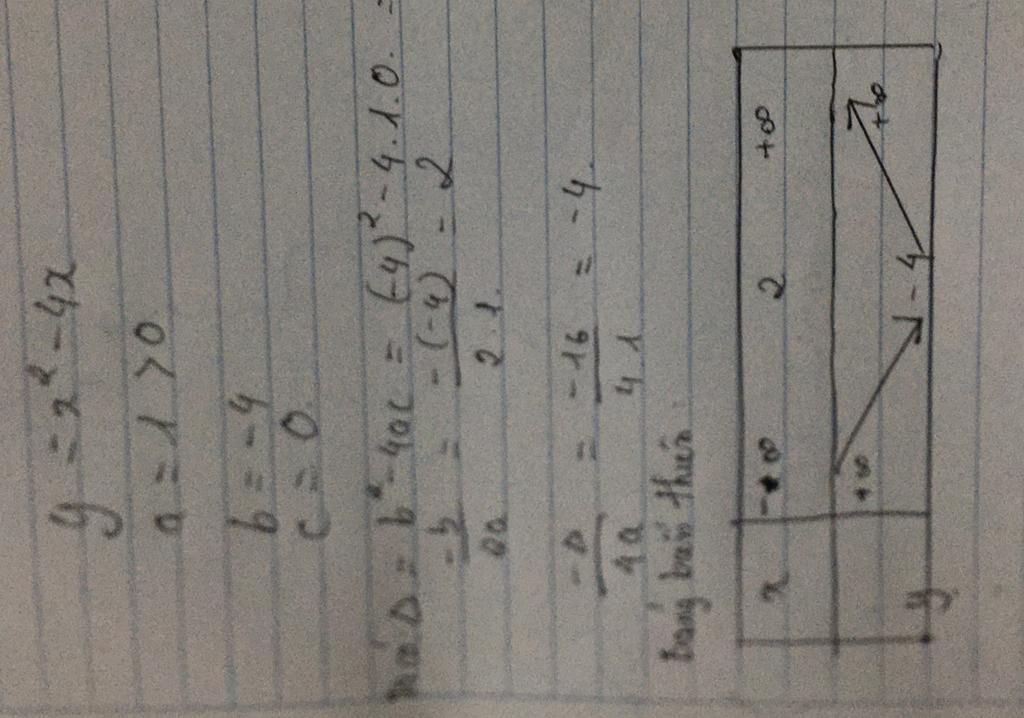 y = x² - 4x
a = 1 > 0
b = -4
c = 0.
Δ = b² - 4ac = (-4)² - 4.1.0. =
-b/2a = -(-4)/2.1. = 2
-Δ/4a = -16/4.1 = -4.
Bảng biến thiên:
x -∞ 2 +∞
y +∞ -4 +∞